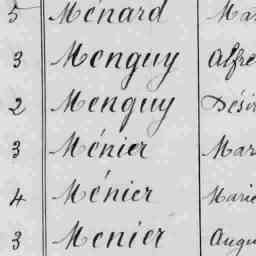 5 Ménard Mar
3 Menguy Alfre
2 Menguy Désir
3 Ménier Mar
4 Ménier Marie
3 Menier Augu